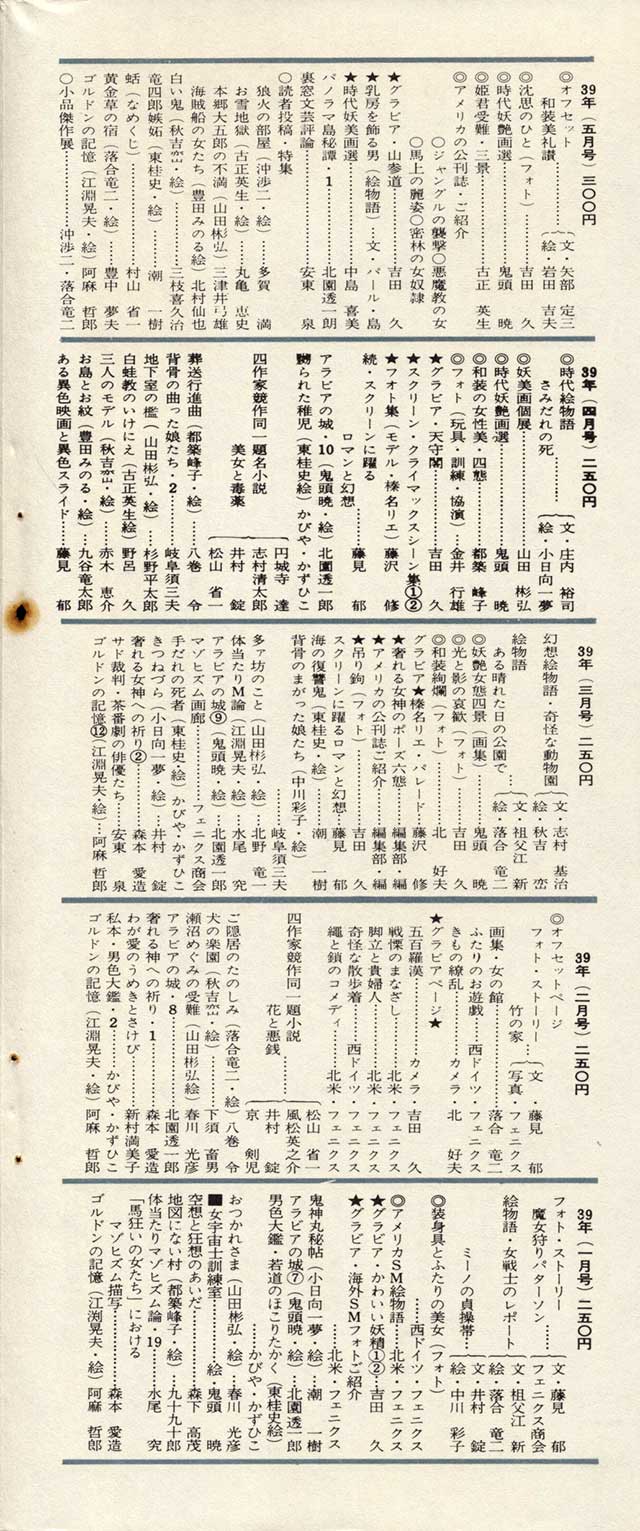 39年(五月号)三〇〇円
◎オフセット
和装美礼讃……{文・矢部 定三
絵・岩田 吉夫
◎沈思のひと(フォト)……吉田 久
◎時代妖艶画選……鬼頭 暁
◎姫君受難・三景……古正 英生
◎アメリカの公刊誌・ご紹介
○ジャングルの襲撃○悪魔教の女
○馬上の麗姿○密林の女奴隷
★グラビア・山参道……吉田 久
★乳房を飾る男(絵物語)…文・バール・島
★時代妖美画選……中島 喜美
パノラマ島秘譚・1……北園透一朗
裏窓文芸評論……安東 泉
○読者投稿・特集
狼火の部屋(沖渉二・絵)…多賀 満
お雪地獄(古正英生・絵)…丸亀 恵史
本郷大五郎の不満(山田彬弘)三津井弓雄
海賊船の女たち(豊田みのる絵)北村仙也
白い鬼(秋吉巒・絵)……三枝喜久治
竜四郎嫉妬(東桂史・絵)…潮 一樹
蛞(なめくじ)……村山 省一
黄金草の宿(落合竜二・絵)…豊中 夢夫
ゴルドンの記憶(江淵晃夫・絵)阿麻 哲郎
○小品傑作展……沖渉二・落合竜二
39年(四月号)二五〇円
◎時代絵物語
さみだれの死……{文・庄内 裕司
絵・小日向一夢
◎妖美画個展……山田 彬弘
◎時代妖艶画選……鬼頭 暁
◎和装の女性美・四態……都築 峰子
◎フォト(玩具・訓練・協演)…金井 行雄
★グラビア・天守閣……吉田 久
★スクリーン・クライマックスシーン集①②
★フォト集(モデル・榛名リエ)藤沢 修
続・スクリーンに躍る
ロマンと幻想……藤見 郁
アラビアの城・10(鬼頭暁・絵)北園透一郎
嬲られた稚児(東桂史絵)かびや・かずひこ
四作家競作同一題名小説
美女と毒薬……{円城寺 達
志村清太郎
井村 錠
松山 省一
葬送行進曲(都築峰子・絵)…八巻 令
背骨の曲った娘たち・2……岐阜須三夫
地下室の檻(山田彬弘・絵)杉野平太郎
白蛙教のいけにえ(古正英生絵)野呂 久
三人のモデル(秋吉巒・絵)…赤木 恵介
お島とお紋(豊田みのる・絵)九谷竜太郎
ある異色映画と異色スライド…藤見 郁
39年(三月号)二五〇円
幻想絵物語・奇怪な動物園
{文・志村 基治
絵・秋吉 巒
絵物語
ある晴れた日の公園で…{文・祖父江 新
絵・落合 竜二
◎妖艶女態四景(画集)……鬼頭 暁
◎光と影の哀歓(フォト)……吉田 久
◎和装絢爛(フォト)……北 好夫
グラビア★榛名リエ・パレード…藤沢 修
★奢れる女神のポーズ六態……編集部・編
★アメリカの公刊誌ご紹介……編集部・編
★吊り鉤(フォト)……吉田 久
スクリーンに躍るロマンと幻想…藤見 郁
海の復讐鬼(東桂史・絵)……潮 一樹
背骨のまがった娘たち(中川彩子・絵)
……岐阜須三夫
多ァ坊のこと(山田彬弘・絵)…北野 竜一
体当たりM論(江淵晃夫・絵)…水尾 究
アラビアの城⑨(鬼頭暁・絵)…北園透一郎
マゾヒズム画廊……フェニクス商会
手だれの死者(東桂史・絵)かびや・かずひこ
きつねづら(小日向一夢・絵)…井村 錠
奢れる女神への祈り②……森本 愛造
サド裁判・茶番劇の俳優たち…安東 泉
ゴルドンの記憶⑫(江淵晃夫・絵)…阿麻 哲郎
39年(二月号)二五〇円
◎オフセットページ
フォト・ストーリー
竹の家……{文・藤見 郁
写真・フェニクス
画集・女の館……落合 竜二
ふたりのお遊戯……西ドイツ・フェニクス
きもの繚乱……カメラ・北 好夫
★グラビアページ★
五百羅漢……カメラ・吉田 久
戦慄のまなざし……北米・フェニクス
脚立と貴婦人……北米・フェニクス
奇怪な散歩着……西ドイツ・フェニクス
縄と鎖のコメディ……北米・フェニクス
四作家競作同一題小説
花と悪銭……{松山 省一
風松英之介
井村 錠
京 剣児
ご隠居のたのしみ(落合竜二・絵)八巻 令
犬の楽園(秋吉巒・絵)……下須 畜男
瀬沼めぐみの受難(山田彬弘絵)春川 光彦
アラビアの城・8……北園透一郎
奢れる神への祈り・1……森本 愛造
わが愛のうめきとさけび……新村満美子
私本・男色大鑑・2……かびや・かずひこ
ゴルドンの記憶(江淵晃夫・絵)阿麻 哲郎
39年(一月号)二五〇円
フォト・ストーリー
魔女狩りパターソン……{文・藤見 郁
フェニクス商会
絵物語・女戦士のレポート
{文・祖父江 新
絵・落合 竜二
ミーノの貞操帯……{文・井村 錠
絵・中川 彩子
◎装身具とふたりの美女(フォト)
……西ドイツ・フェニクス
◎アメリカSM絵物語……北米・フェニクス
★グラビア・かわいい妖精①②…吉田 久
★グラビア・海外SMフォトご紹介
……北米・フェニクス
鬼神丸秘帖(小日向一夢・絵)…潮 一樹
アラビアの城⑦(鬼頭暁・絵)…北園透一郎
男色大鑑・若道のほこりたかく(東桂史絵)
……かびや・かずひこ
おつかれさま(山田彬弘・絵)…春川 光彦
■女宇宙士訓練室……絵・鬼頭 暁
空想と狂想のあいだ……森下 高茂
地図にない村(都築峰子・絵)…九十九十郎
体当たりマゾヒズム論・19……水尾 究
「馬狂いの女たち」における
マゾヒズム描写……森本 愛造
ゴルドンの記憶(江渕晃夫・絵)阿麻 哲郎